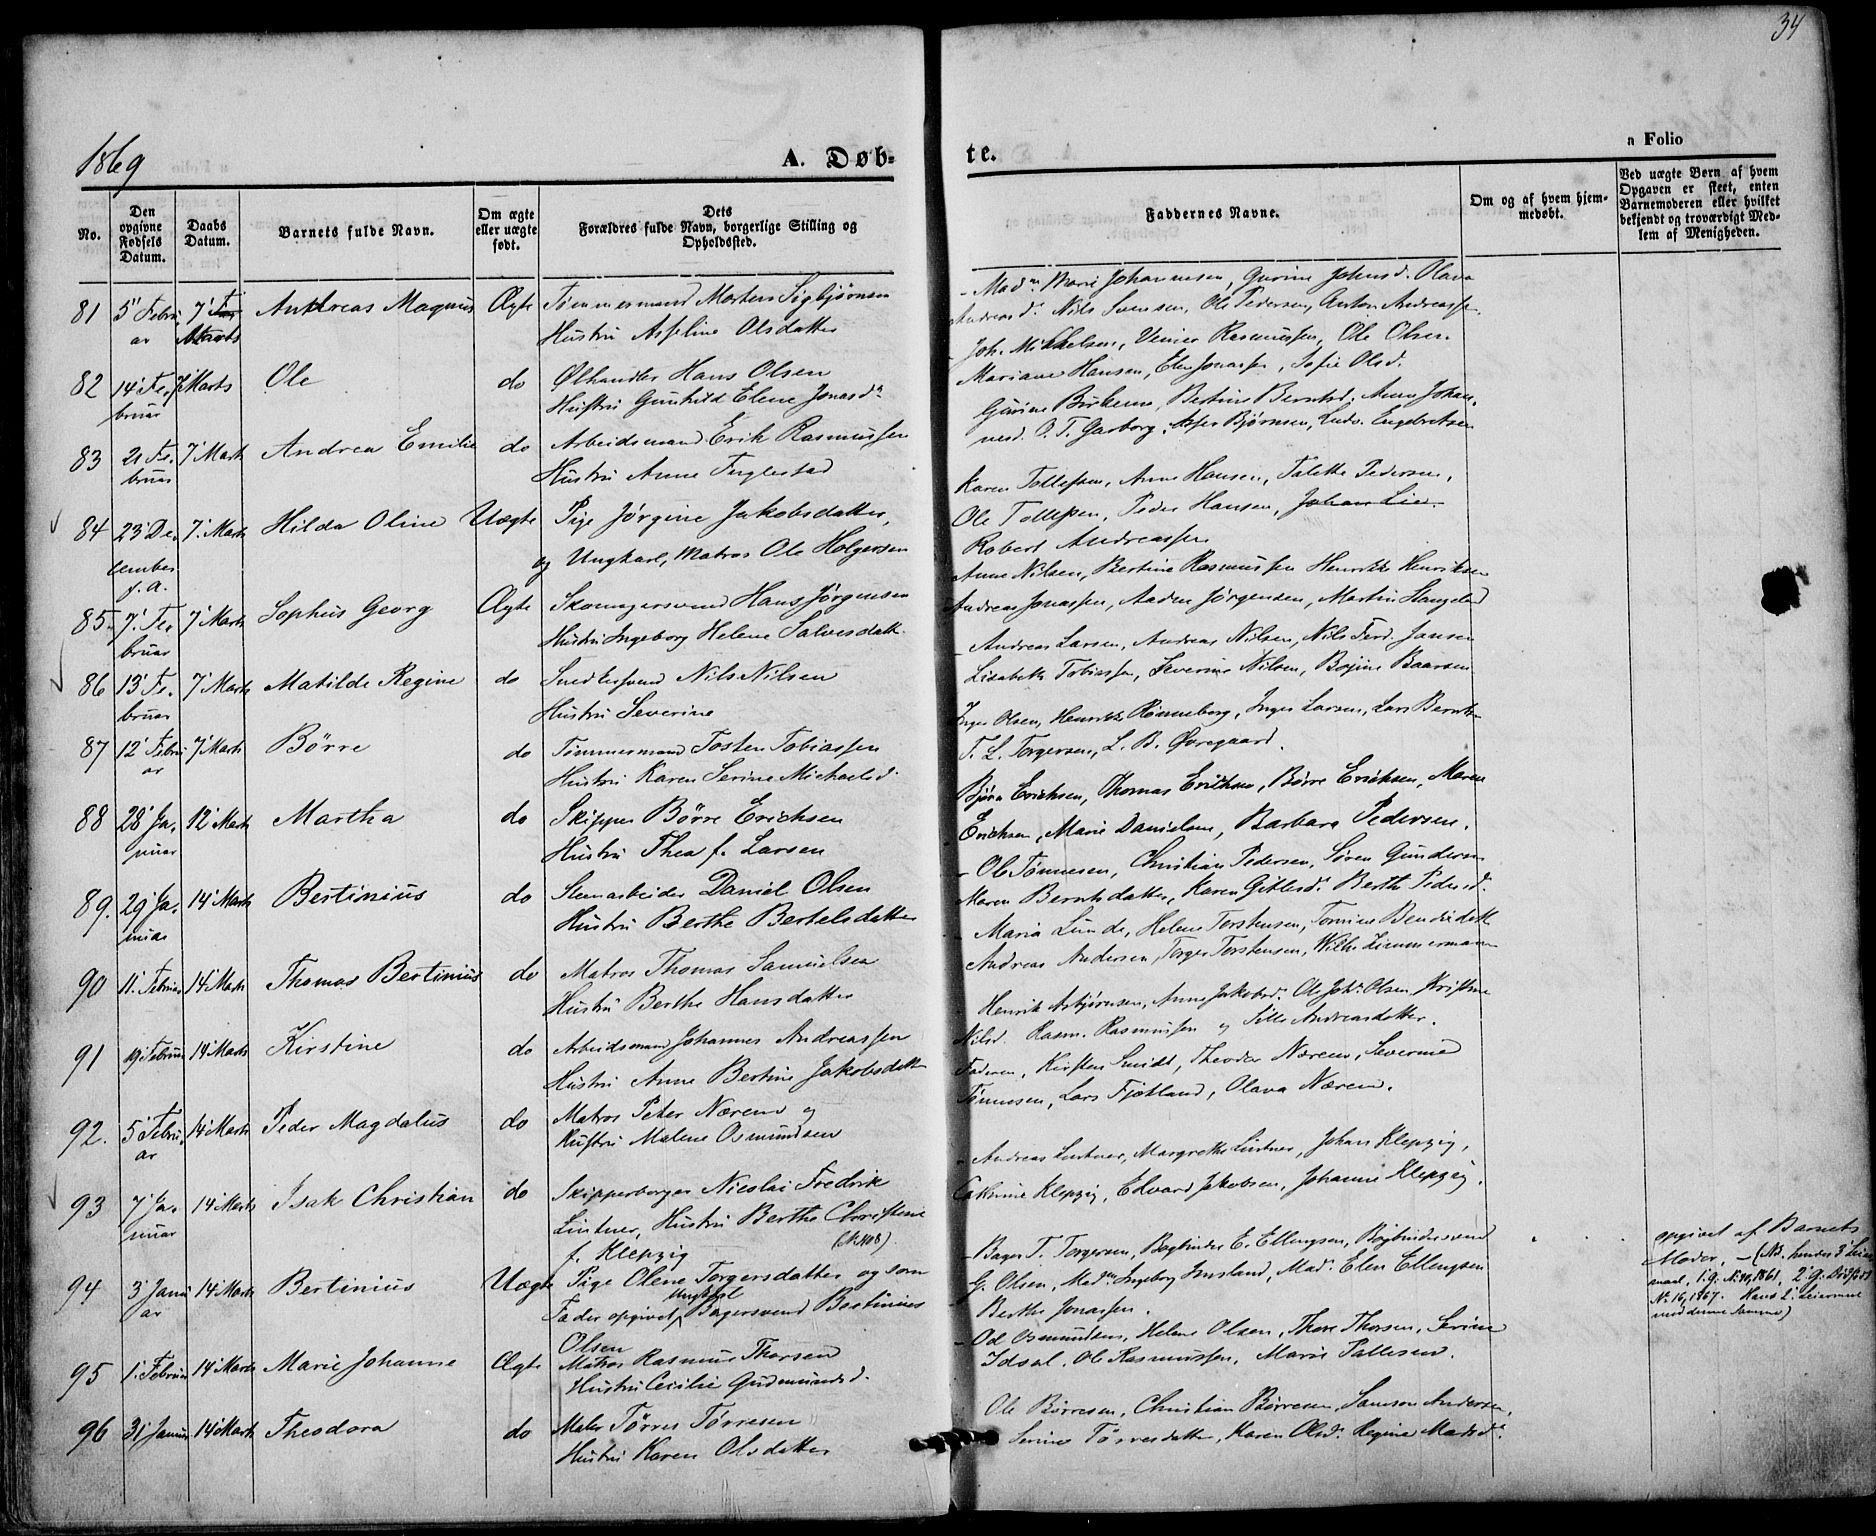 34
1869
A. Døb-
te.
a Folio
No.
Den opgivne Fødsels Datum.
Daabs Datum.
Barnets fulde Navn.
Om ægte eller uægte født.
Dets Forældres fulde Navn, borgerlige Stilling og Opholdssted.
Faddernes Navne.
Om og af hvem hjemmedøbt.
Ved uægte Børn af hvem Opgaven er skeet, enten Barnemoderen eller hvilket bekjendt og troværdigt Medlem af Menigheden.
81 5' Februar 7' Marts Andreas Magnus Ægte Tømmermand Morten Sigbjørnsen
Hustru Asseline Olsdatter
Marie Johannesen, Gurine Johnsd. Olava
Andreasd. Nils Svensen, Ole Pedersen, Anton Andreassen
Joh. Mikkelsen, Rasmussen, Ole Olsen.
82 14' Februar 7 Marts Ole do Ølhandler Hans Olsen
Hustru Gunhild Elene Jonasd.
Mariane Hansen, Elen Jonassen, Sofie Olsd.
83 21 Februar 7' Marts Andrea Emilie do Arbeidsmand Erik Rasmussen
Hustru Anne Fuglestad
Gurine Birkeme, Bertine Berntsd. Anne Johannesd.
O. T. Garborg, Asser Bjørnsen, Ludv. Engebretsen
84 23' December f. A. 7' Marts Hilda Oline Uægte Pige Jørgine Jakobsdatter,
og Ungkarl, Matros Ole Holgersen
Karen Tollefsen, Anne Hansen, Talette Pedersen,
Ole Tollefsen, Peder Hansen, Johan Lie.
Robert Andreassen
85. 7' Februar 7' Marts Sophus Georg Ægte Skomagersvend Hans Jørgensen
Hustru Ingeborg Helene Salvesdatt.
Anne Nilsen, Bertine Rasmussen Henrikke Henriksen
Andreas Jonassen, Aaden Jørgensen, Martin Haugeland
86 13' Februar 7' Marts Matilde Regine do Snedkersvend Nils Nilsen
Hustru Severine
Andreas Larsen, Andreas Nilsen, Nils Ferd. Jansen
Lisabeth Tobiassen, Severine Nilsen, Baarsen
87 12' Februar 7' Marts Børre do Tømmermand Tosten Tobiassen
Hustru Karen Serine Michaelsd.
Inger Olsen, Henrikke Rønneberg, Inger Larsen, Lars Berntsen
T. L. Torgersen, L. B. Øvregaard.
88 28' Januar 12' Marts Martha do Skipper Børre Erichsen
Hustru Thea f. Larsen
Bjørn Erichsen, Thomas Erichsen, Børre Erichsen, Maren
Erichsen, Marie Danielsen, Barbara Pedersen.
89. 29' Januar 14' Marts Bertinius do Stenarbeider Daniel Olsen
Hustru Berthe Bertelsdatter
Ole Tønnesen, Christian Pedersen, Søren Gundersen
Maren Berntsdatter, Karen Gitlesd. Berthe Pedersd.
90 11' Februar 14' Marts Thomas Bertinius do Matros Thomas Samuelsen
Hustru Berthe Hansdatter
Maria Lunde, Helene Torstensen, Tomine Bendixdatt.
Andreas Andersen, Torger Torstensen, Wilh. Zimmermann
91 19' Februar 14' Marts Kirstine do Arbeidsmand Johannes Andreassen
Hustru Anne Bertine Jakobsdatter
Henrik Asbjørnsen, Anne Jakobsd. Ole Joh. Olsen, Kristine
Nilsd. Rasm. Rasmussen og Sille Andreasdatter.
92. 5' Februar 14' Marts Peder Magdalus do Matros Peter Nærem og
Hustru Malene Osmundsen
Faderen, Kirsten Smidt, Theodor Nærem, Severine
Tønnesen, Lars Fjotland, Olava Nærem.
93 7' Januar 14' Marts Isak Christian do Skipperborger Nicolai Fredrik
Lintner, Hustru Berthe Christine
f. Klepzig
Andreas Lintner, Margrethe Lintner, Johan Klepzig,
Cathrine Klepzig, Edvard Jakobsen, Johanne Klepzig.
94 3' Januar 14' Marts Bertinius Uægte Pige Olene Torgersdatter og som
Fader opgivet Ungkarl Bagersvend Bertinius
Olsen
Bager T. Torgersen, Bogbinder E. Ellingsen, Bogbindersvend
G. Olsen, Mad. Ingeborg Jensland, Mad. Elen Ellingsen
Berthe Jonassen.
opgivet af Barnets
Moder, – (NB. hendes 3' Leiermaal, 1. g. No. 40, 1861, 2' g.
No. 16, 1867. Hans 2' Leiermaal
med denne samme)
95 1' Februar 14' Marts Marie Johanne Ægte Matros Rasmus Thorsen
Hustru Cecilie Gudmundsd.
Od Osmundsen, Helene Olsen, Thore Thorsen, Serine
Idsal, Ole Rasmussen, Marie Pallesen.
96 31' Januar 14' Marts Theodora do Maler Tørres Tørresen
Hustru Karen Olsdatter
Ole Børresen, Christian Børresen, Samson Andersen,
Serine Tørresdatter, Karen Olsd. Regine Madsd.